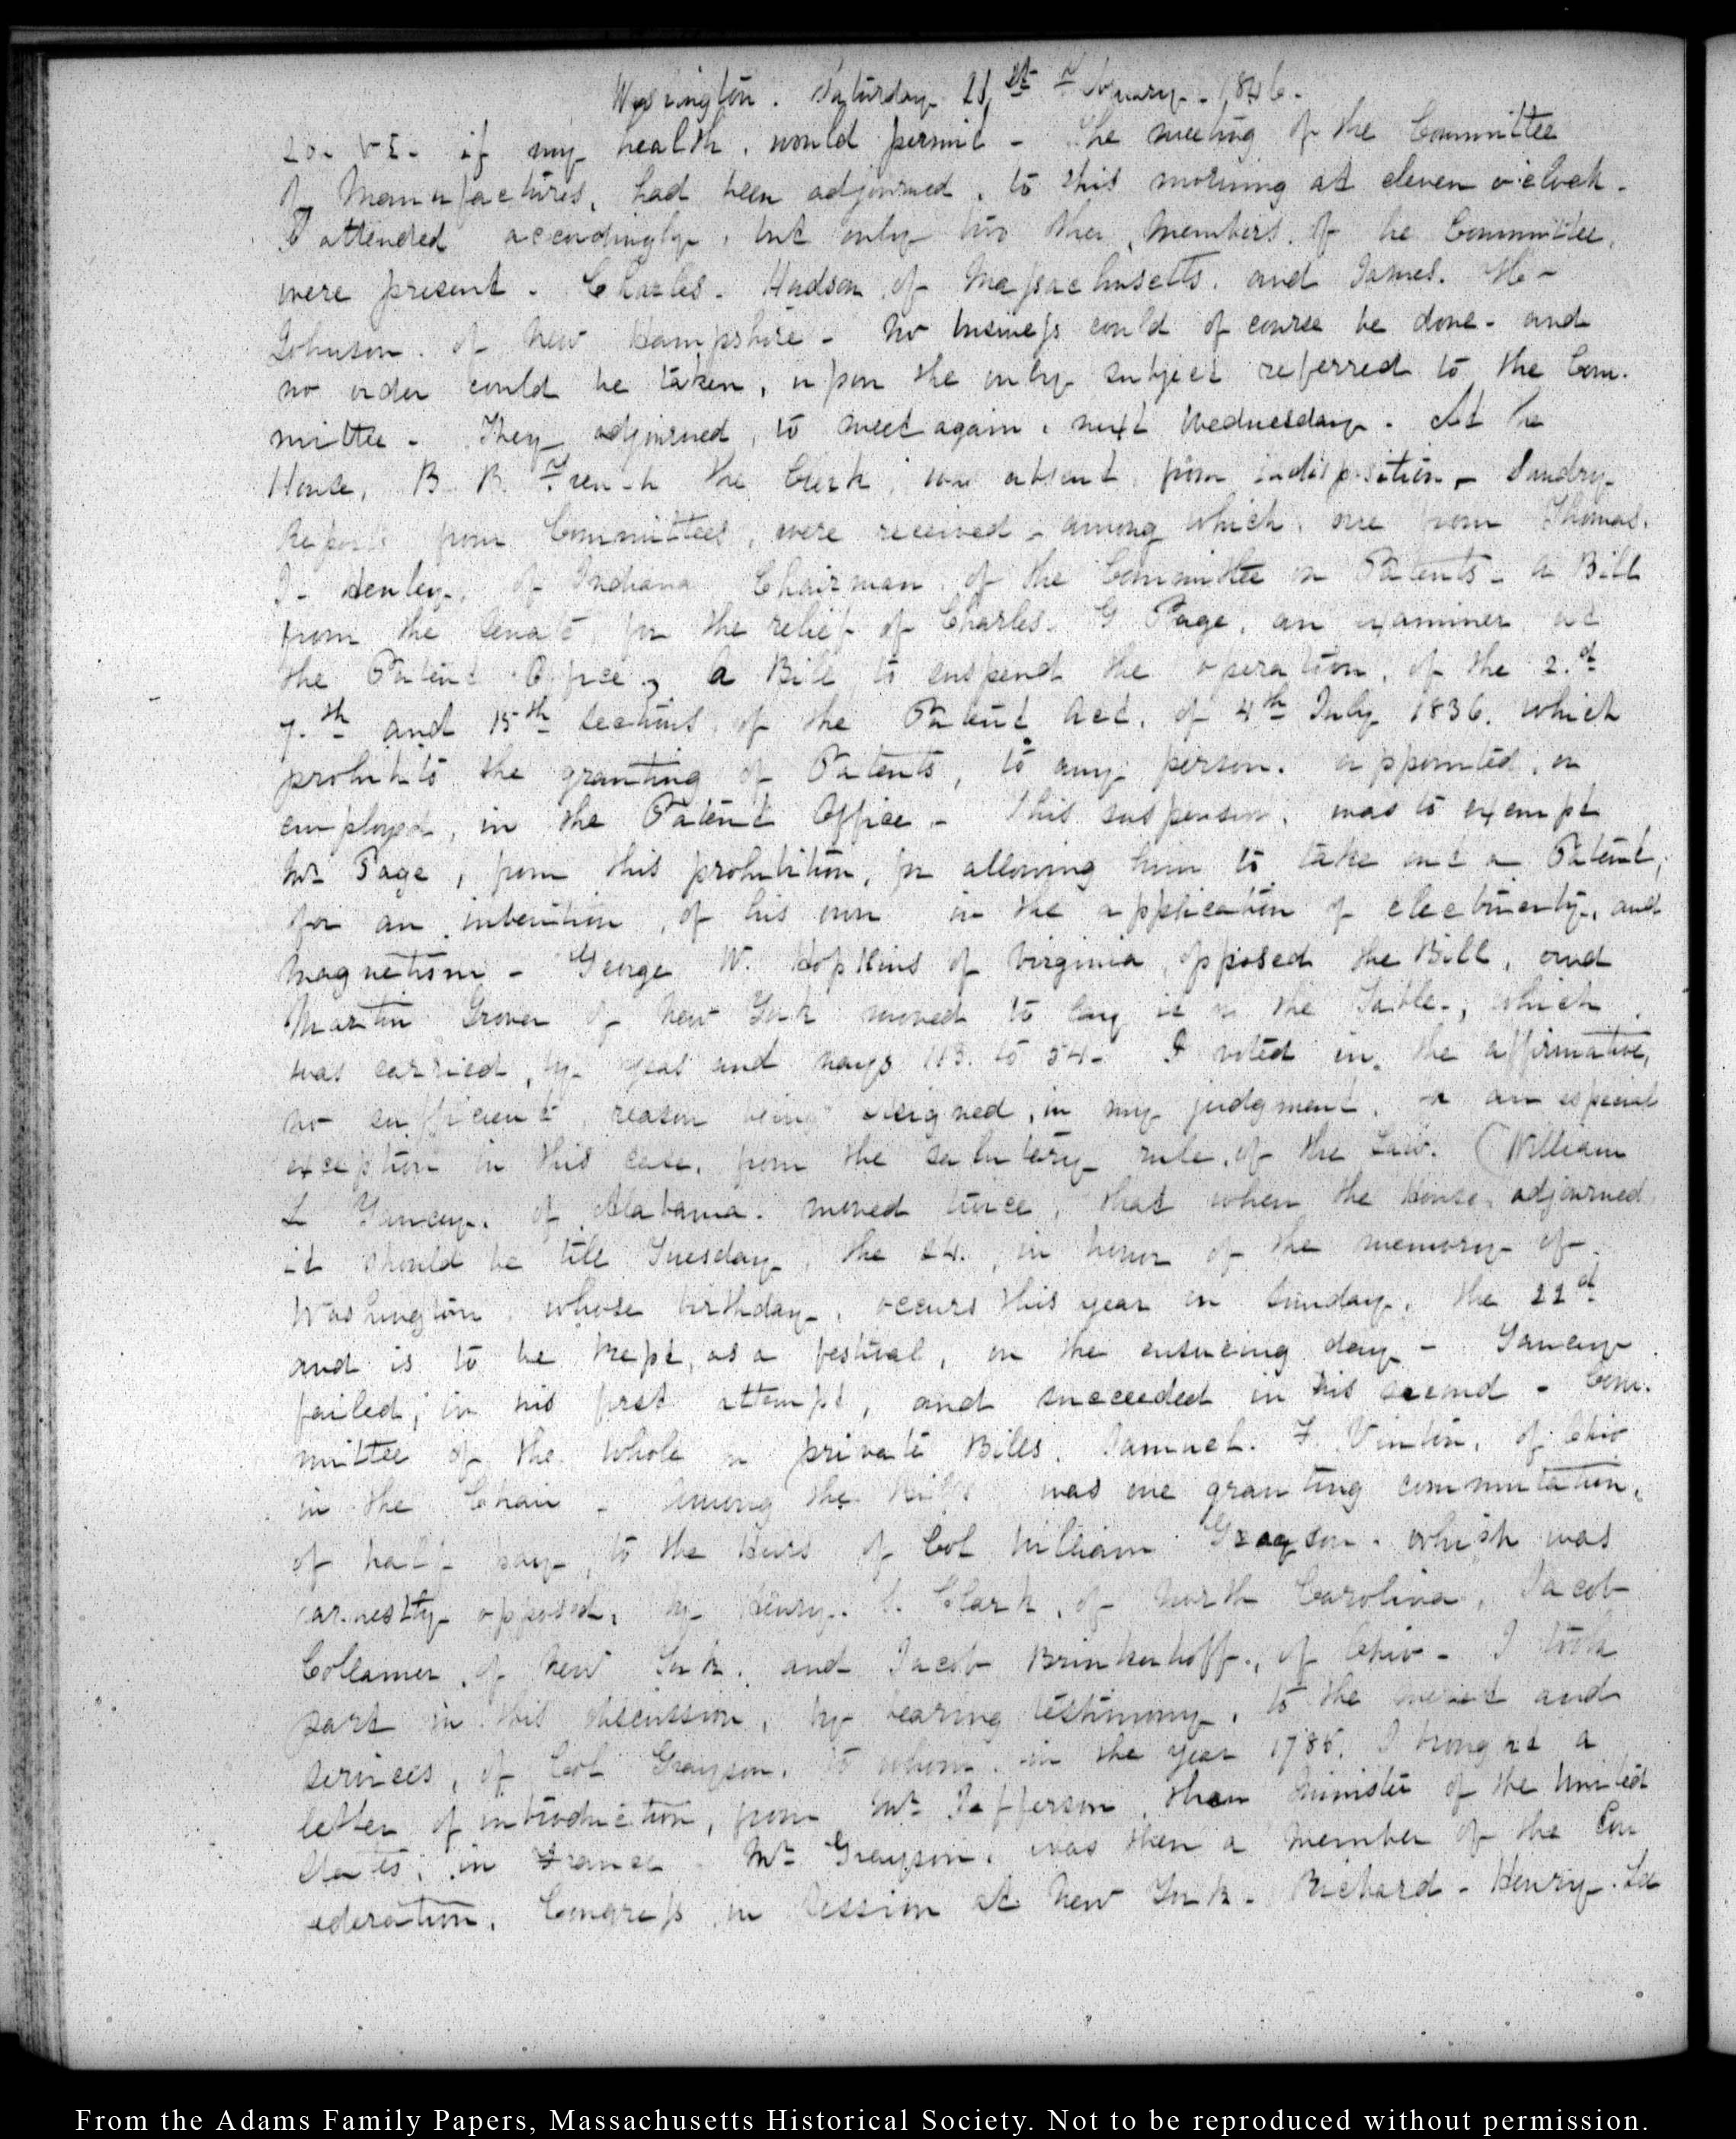 Washington. Saturday 21.st February. 1846.
20. VI. if my health, would permit - The meeting of the Committee
of Manufactures, had been adjourned, to this morning at eleven o'clock.
I attended accordingly, but only two other members of the Committee,
were present. Charles. Hudson of Massachusetts. and James. H-
Johnson. of New Hampshire - No business could of course be done. and
no order could be taken, upon the only subject referred to the Com-
mittee - They adjourned, to meet again, next Wednesday. At the
House, B. B. French the Clerk, was absent from indisposition - Sundry
Reports from Committees, were received, among which, one from Thomas.
J. Henley, of Indiana Chairman of the Committee on Patents - a Bill
from the Senate for the relief of Charles. G Page, an examiner at
the Patent Office, a Bill to suspend the operation, of the 2.d
7.th and 15th sections, of the Patent Act, of 4th July 1836. which
prohibits the granting of Patents, to any person. appointed, or
employed, in the Patent Office - This suspension, was to exempt
Mr Page, from this prohibition, for allowing him to take out a Patent,
for an invention, of his own in the application of electricity, and
magnetism - George W. Hopkins of Virginia, opposed the Bill, and
Martin Grover of New York moved to lay it on the Table, which
was carried, by yeas and nays 113. to 54 - I voted in the affirmative,
no sufficient reason being assigned, in my judgment, for an especial
exception in this case, from the salutary rule, of the Law. (William
L Yancey. of Alabama. moved twice, that when the House, adjourned
it should be till Tuesday, the 24. in honor of the memory of
Washington, whose birthday, occurs this year on Sunday, the 22d
and is to be kept, as a festival, on the ensueing day - Yancey
failed, in his first attempt, and succeeded in his second - Com-
mittee of the whole on private Bills. Samuel. F Vinton, of Ohio
in the Chair - Among the Bills was one granting commutation,
of half pay, to the Heirs of Col William Grayson. which was
earnestly opposed, by Henry. S. Clark, of North Carolina, Jacob
Collamer, of New York. and Jacob Brinkerhoff, of Ohio - I took
part in this discussion, by bearing testimony, to the merit and
services, of Col Grayson. to whom in the year 1785. I brought a
letter of introduction, from Mr Jefferson, then Minister of the United
States, in France - Mr Grayson, was then a member of the Con
federation, Congress in session at New York - Richard - Henry. Lee
From the Adams Family Papers, Massachusetts Historical Society. Not to be reproduced without permission.